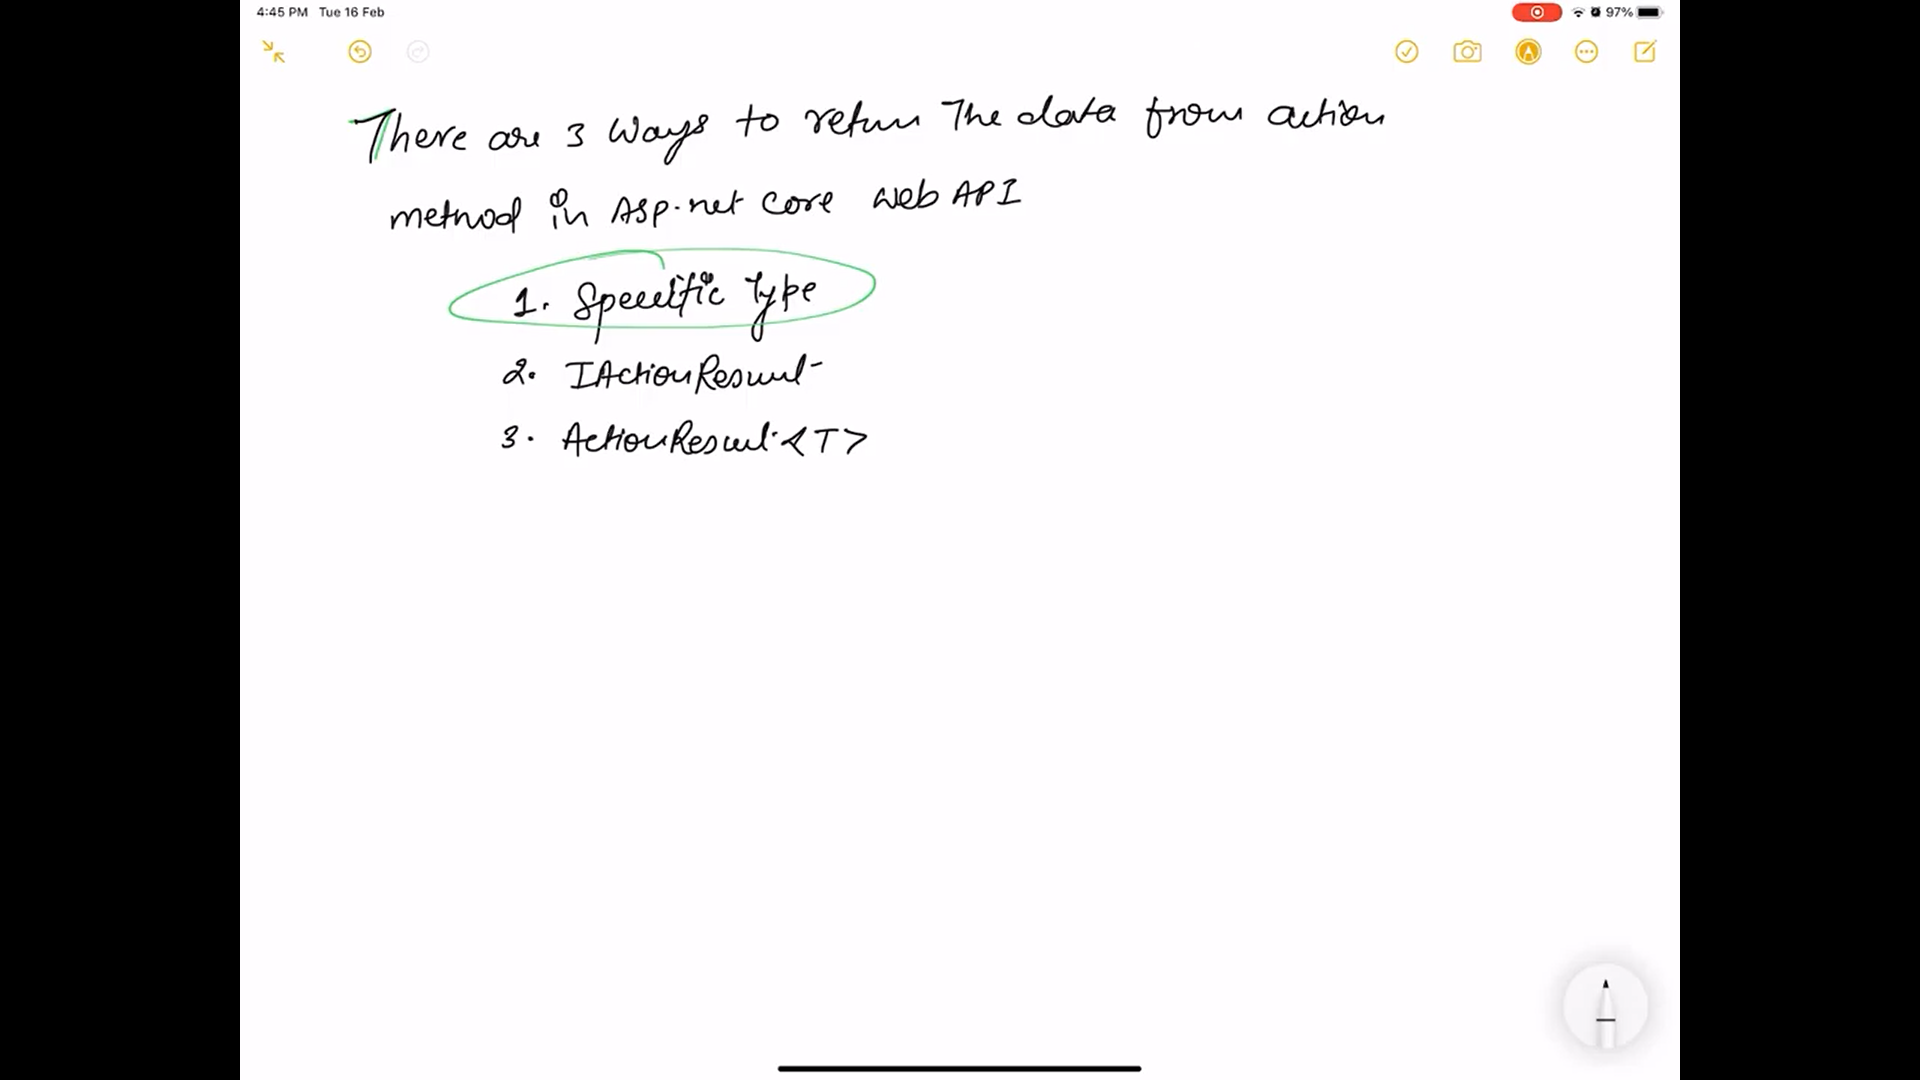 4:45 PM Tue 16 Feb
97%
There are 3 ways to return The data from action
method in Asp.net core web API
1. Specific Type
2. IActionResult
3. ActionResult<T>